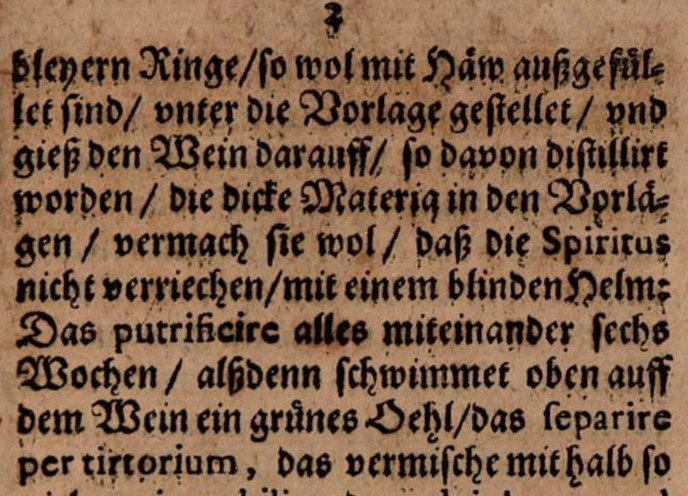 2
bleyern Ringe/so wol mit Häw außgefül-
let sind/ vnter die Vorlage gestellet/ vnd
gieß den Wein darauff/ so davon distillirt
worden/ die dicke Materia in den Vorlä-
gen/ vermach sie wol/ daß die Spiritus
nicht verriechen/mit einem blinden Helm:
Das putrificire alles miteinander sechs
Wochen/ alßdenn schwimmet oben auff
dem Wein ein grünes Oehl/das separire
per tirtorium, das vermische mit halb so